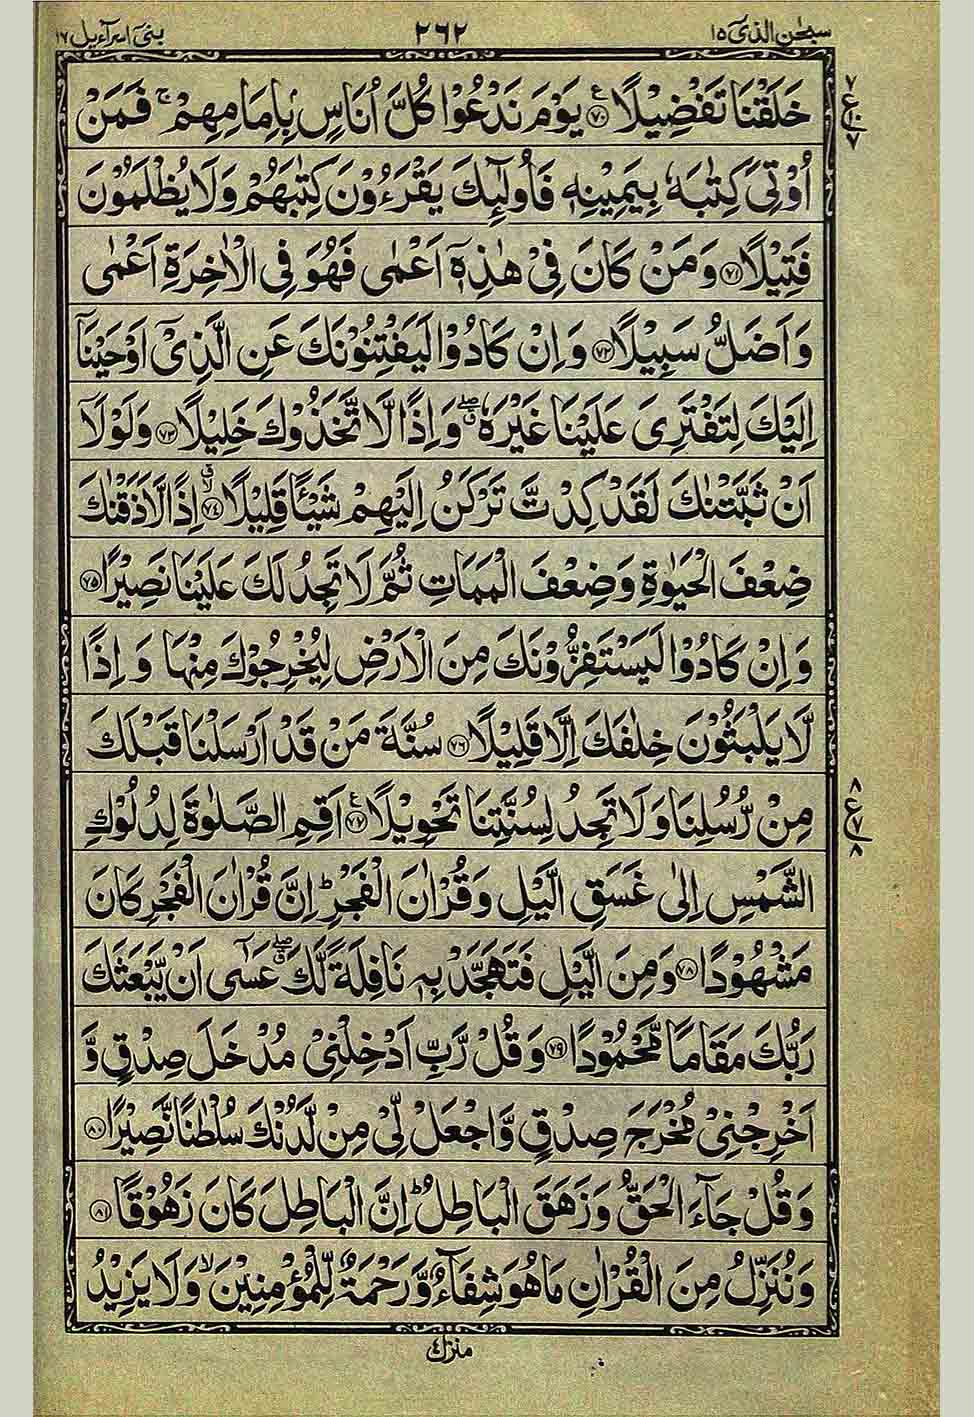 سبحٰن الذی ١٥ ٢٦٢ بنی اسرآءیل ١٧
خَلَقْنَا تَفْضِيْلًا ﴿٧٠﴾ يَوْمَ نَدْعُوْا كُلَّ اُنَاسٍۭ بِاِمَامِهِمْ ۚ فَمَنْ
اُوْتِيَ كِتٰبَهٗ بِيَمِيْنِهٖ فَاُولٰٓئِكَ يَقْرَءُوْنَ كِتٰبَهُمْ وَلَا يُظْلَمُوْنَ
فَتِيْلًا ﴿٧١﴾ وَمَنْ كَانَ فِيْ هٰذِهٖٓ اَعْمٰى فَهُوَ فِي الْاٰخِرَةِ اَعْمٰى
وَاَضَلُّ سَبِيْلًا ﴿٧٢﴾ وَاِنْ كَادُوْا لَيَفْتِنُوْنَكَ عَنِ الَّذِيْٓ اَوْحَيْنَآ
اِلَيْكَ لِتَفْتَرِيَ عَلَيْنَا غَيْرَهٗ ۖ وَاِذًا لَّاتَّخَذُوْكَ خَلِيْلًا ﴿٧٣﴾ وَلَوْلَآ
اَنْ ثَبَّتْنٰكَ لَقَدْ كِدْتَّ تَرْكَنُ اِلَيْهِمْ شَيْـًٔا قَلِيْلًا ﴿٧٤﴾ اِذًا لَّاَذَقْنٰكَ
ضِعْفَ الْحَيٰوةِ وَضِعْفَ الْمَمَاتِ ثُمَّ لَا تَجِدُ لَكَ عَلَيْنَا نَصِيْرًا ﴿٧٥﴾
وَاِنْ كَادُوْا لَيَسْتَفِزُّوْنَكَ مِنَ الْاَرْضِ لِيُخْرِجُوْكَ مِنْهَا وَاِذًا
لَّا يَلْبَثُوْنَ خِلٰفَكَ اِلَّا قَلِيْلًا ﴿٧٦﴾ سُنَّةَ مَنْ قَدْ اَرْسَلْنَا قَبْلَكَ
مِنْ رُّسُلِنَا وَلَا تَجِدُ لِسُنَّتِنَا تَحْوِيْلًا ﴿٧٧﴾ اَقِمِ الصَّلٰوةَ لِدُلُوْكِ
الشَّمْسِ اِلٰى غَسَقِ الَّيْلِ وَقُرْاٰنَ الْفَجْرِ ؕ اِنَّ قُرْاٰنَ الْفَجْرِ كَانَ
مَشْهُوْدًا ﴿٧٨﴾ وَمِنَ الَّيْلِ فَتَهَجَّدْ بِهٖ نَافِلَةً لَّكَ ۖ عَسٰٓى اَنْ يَّبْعَثَكَ
رَبُّكَ مَقَامًا مَّحْمُوْدًا ﴿٧٩﴾ وَقُلْ رَّبِّ اَدْخِلْنِيْ مُدْخَلَ صِدْقٍ وَّ
اَخْرِجْنِيْ مُخْرَجَ صِدْقٍ وَّاجْعَلْ لِّيْ مِنْ لَّدُنْكَ سُلْطٰنًا نَّصِيْرًا ﴿٨٠﴾
وَقُلْ جَآءَ الْحَقُّ وَزَهَقَ الْبَاطِلُ ؕ اِنَّ الْبَاطِلَ كَانَ زَهُوْقًا ﴿٨١﴾
وَنُنَزِّلُ مِنَ الْقُرْاٰنِ مَا هُوَ شِفَآءٌ وَّرَحْمَةٌ لِّلْمُؤْمِنِيْنَ ۙ وَلَا يَزِيْدُ
منزل ٤